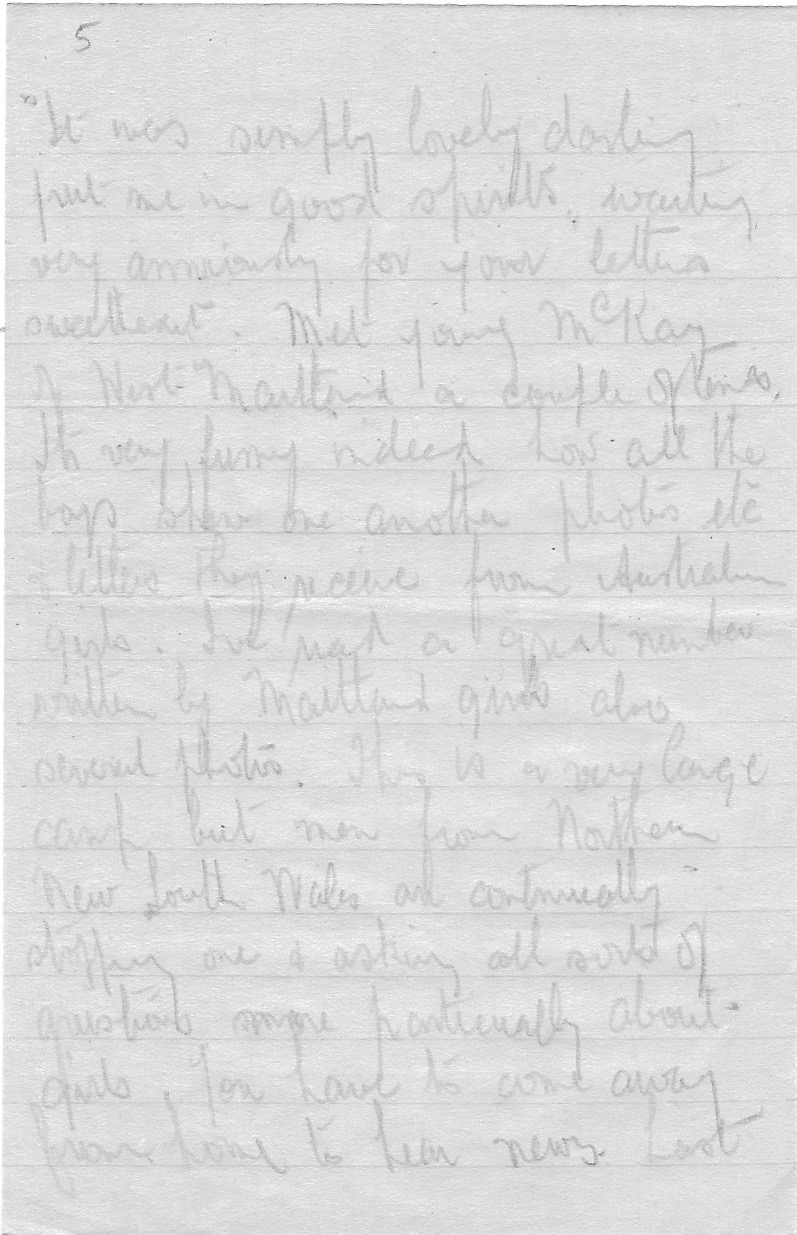 5
"It was simply lovely darling
put me in good spirits. waiting
very anxiously for your letters
sweetheart. Met young McKay
of West Maitland a couple of times.
Its very funny indeed how all the
boys shew one another photo's etc
& letters they receive from Australian
girls. I've read a great number
written by Maitland girls also
several photos. This is a very large
camp but men from Northern
New South Wales are continually
stopping one & asking all sorts of
questions more particually about
girls. You have to come away
from home to hear news. Last